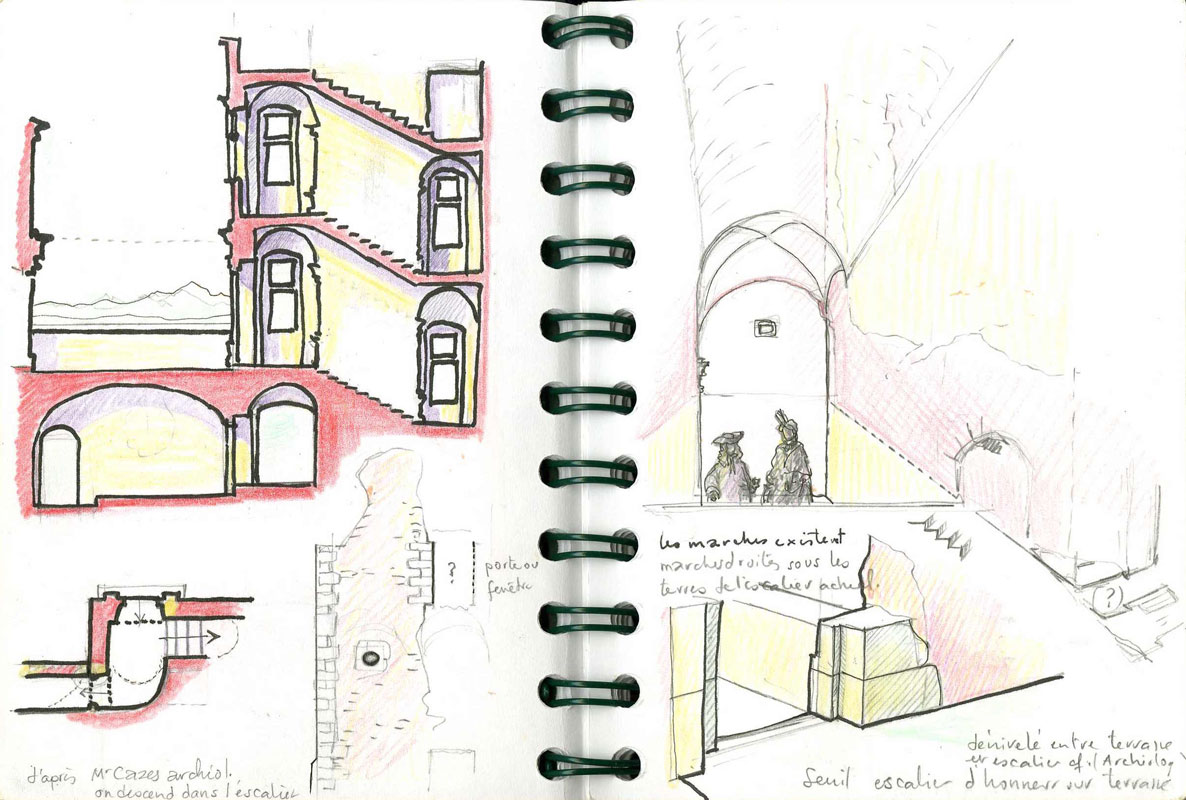 ?
porte ou
fenêtre
d'après Mr Cazes archéol.
on descend dans l'escalier
les marches existent
marches droites sous les
terres de l'escalier actuel.
?
dénivelé entre terrasse
et escalier cf. l'Archéolog
Seuil escalier d'honneur sur terrasse